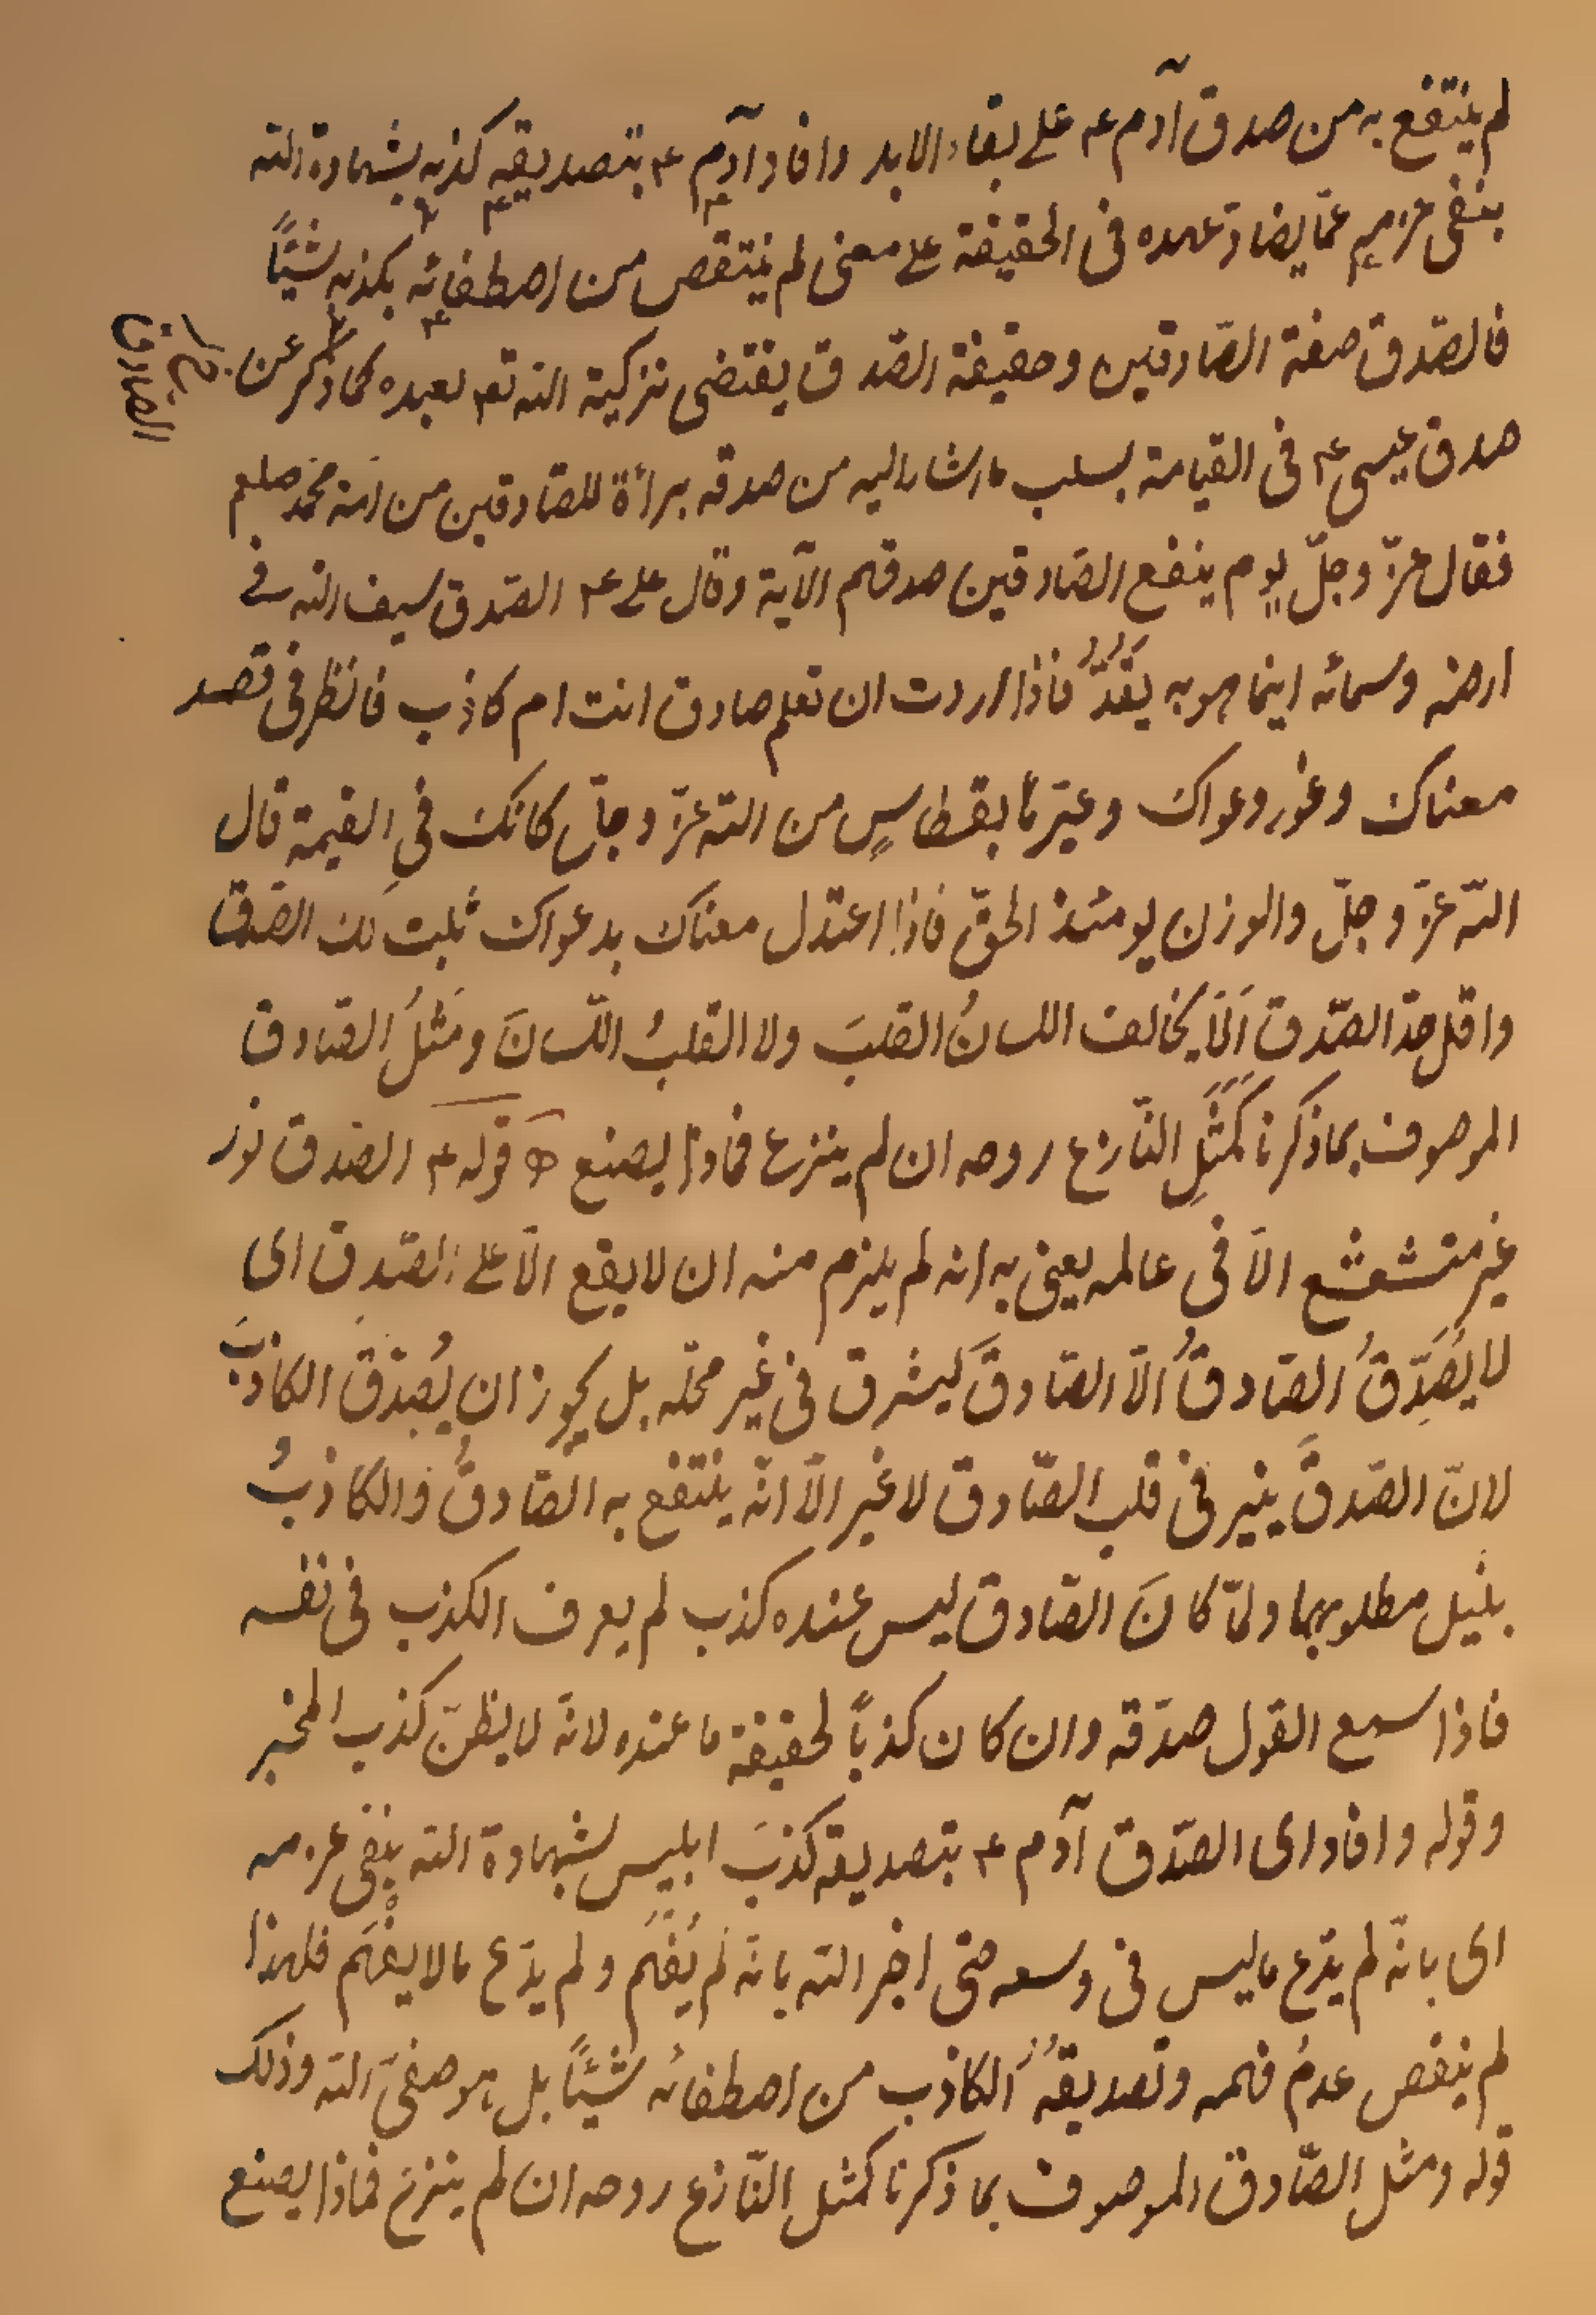 لم ينتفع به من صدق آدم ع على بقاء الابد وافاد آدم ع بتصديقه كذبه بشهادة الله
بنفى عزمه عمّا يضادّ عهده فى الحقيقة على معنى لم ينتقص من اصطفائه بكذبه شيئاً
فالصّدق صفة الصّادقين وحقيقة الصّدق يقتضى تزكية الله تع لعبده كما ذكر عن
الصادق
صدق عيسى ع فى القيامة بسبب ما اشار اليه من صدقه برأة للصّادقين من امّة محمّد صلعم
فقال عزّ وجلّ يوم ينفع الصّادقين صدقهم الآية وقال على ع الصّدق سيف الله فى
ارضه وسمائه اينما هو به يَقُدُّ فاذا اردت ان تعلم صادق انت ام كاذب فانظر فى قصد
معناك وغور دعواك وعيّرها بقسطاسٍ من الله عزّ وجلّ كانك فى القيمة قال
الله عزّ وجلّ والوزن يومئذ الحقّ فاذا اعتدل معناك بدعواك ثبت لك الصّدق
واقل حدّ الصّدق اَلّا يخالف اللسانُ القلبَ ولا القلبُ اللّسانَ ومَثَلُ الصّادق
الموصوف بما ذكرنا كَمَثَلِ النّازع روحه ان لم ينزع فماذا يصنع قوله ع الصّدق نور
غير متشعشع الاّ فى عالمه يعنى به انه لم يلزم منه ان لا يقع الاّ على الصّدِق اى
لا يُصَدِّقُ الصّادقُ الاّ الصّادقَ ليشرق فى غير محلّه بل يجوز ان يُصدِّق الكاذبَ
لانّ الصّدقَ ينير فى قلب الصّادق لا غير الاّ انّه ينتفع به الصّادقُ والكاذبُ
بنَيل مطلوبهما ولمّا كانَ الصّادق ليس عنده كذب لم يعرف الكذب فى نفسه
فاذا سمع القول صدّقه وان كان كذباً لحقيقة ما عنده لانّه لا يظنّ كذب المخبر
وقوله وافاد اى الصّدق آدم ع بتصديقه كذبَ ابليس لشهادة الله بنفى عزمه
اى بانّه لم يدّع ما ليس فى وسعه حتى اخبر الله بانّه لم يُفْهَم ولم يدّع ما لا يفهَم فلهذا
لم ينقص عدمُ فهمه وتصديقُهُ الكاذب من اصطفائه شيئاً بل هو صفىّ الله وذلك
قوله ومثل الصّادق الموصوف بما ذكرنا كمثل النّازع روحه ان لم ينزع فماذا يصنع